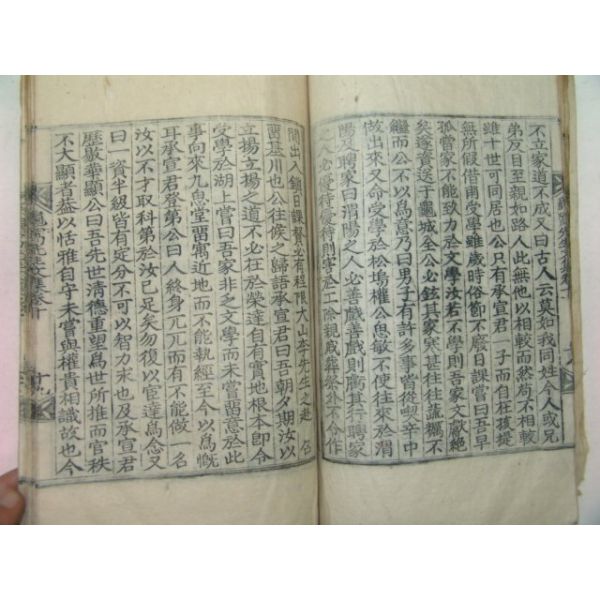 不立家道不成又曰古人云莫如我同姓今人或兄
弟反目至親如路人此無他以相較而然局不相較
雖十世可同居也公只有承宣君一子而自在孩提
無所假借甫受學雖歲時俗節不廢日課嘗曰吾早
孤嘗家不能致力於文學汝若不學則吾家文獻絶
矣遂資送于龜城金公必鉉其家寒甚往往蔬糲不
繼而公不以爲意乃曰男子有許多事嘗從喫辛中
做出來又命受學於松塢權公思敏不使往來於渭
陽及聘家曰渭陽之人必善戲善戲則蕩其行聘家
之人必優待優待則害於工除親戚葬祭外不令作
閒出入鎖日課賢必有程限大山李先生之赴
茵基川也公往候之歸語承宣君曰吾朝夕期汝以
立揚立揚之道不必在於榮達自有實地根本卽令
受學於湖上嘗曰吾家非之文學而未嘗留意於此
事向來九魚堂畱寓近地而不能執經至今以爲慨
耳承宣君登第公曰人終身兀兀而有不能做一名
汝以不才取科第於汝已足矣勿復以宦達爲念又
曰一資半級皆有定分不可以智力求也及承宣君
歷敭華顯公曰吾先世清德重望爲世所推而官秩
不大顯者葢以恬雅自守未嘗與權貴相識故也今